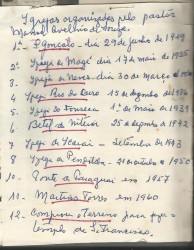 Igrejas organizadas pelo pastor
Manoel Avelino de Souza.
1ª - S. Gonçalo - dia 29 de junho de 1919
2ª Igreja de Magé dia 17 de maio de 1925
3ª Igreja de Neves - dia 30 de março de
4 Igrej Rio do Ouro 15 de dezembro de 1936
5 Igrej do Fonseca 1º de Maio de 1939
6 Betel de Niterói 25 de dezembro de 1942
7 Igreja de Icaraí - Setembro de 1943
8 Igreja de Pendotiba - 21 de outubro de 1950
10. Ponte de Paraguai em 1957
11 Martins Torres em 1960
12. Comprou o Terreno para
templo de S. Francisco.